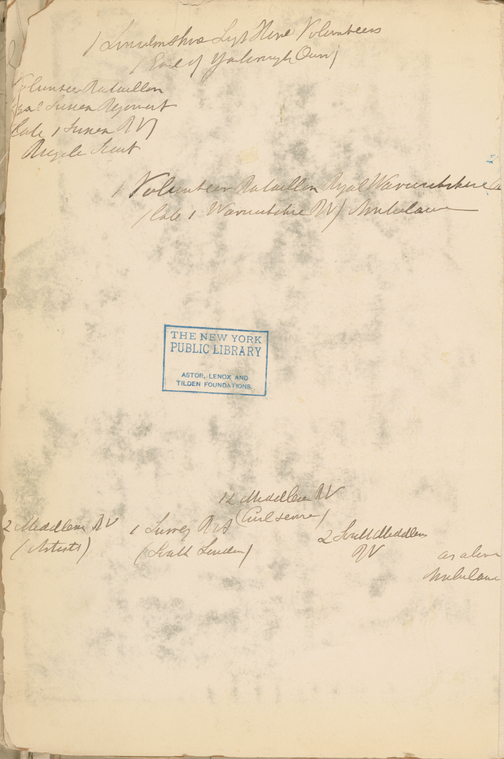 1 Lincolnshire Lyt Horse Volunteers
/Earl of Yarborough Own/
Volunteer Battalion
Royal Sussex Regiment
/late 1 Sussex RV/
Bicycle Scout
1 Volunteer Battalion Royal Warwickshire
/late 1 Warwickshire RV/ Ambulance
THE NEW YORK
PUBLIC LIBRARY
ASTOR, LENOX AND
TILDEN FOUNDATIONS
12 Middlesex RV
(Civil Service)
2 Middlesex RV
(Artists)
1 Surrey RV
(South London)
2 South Middlesex
RV
as above
Ambulance